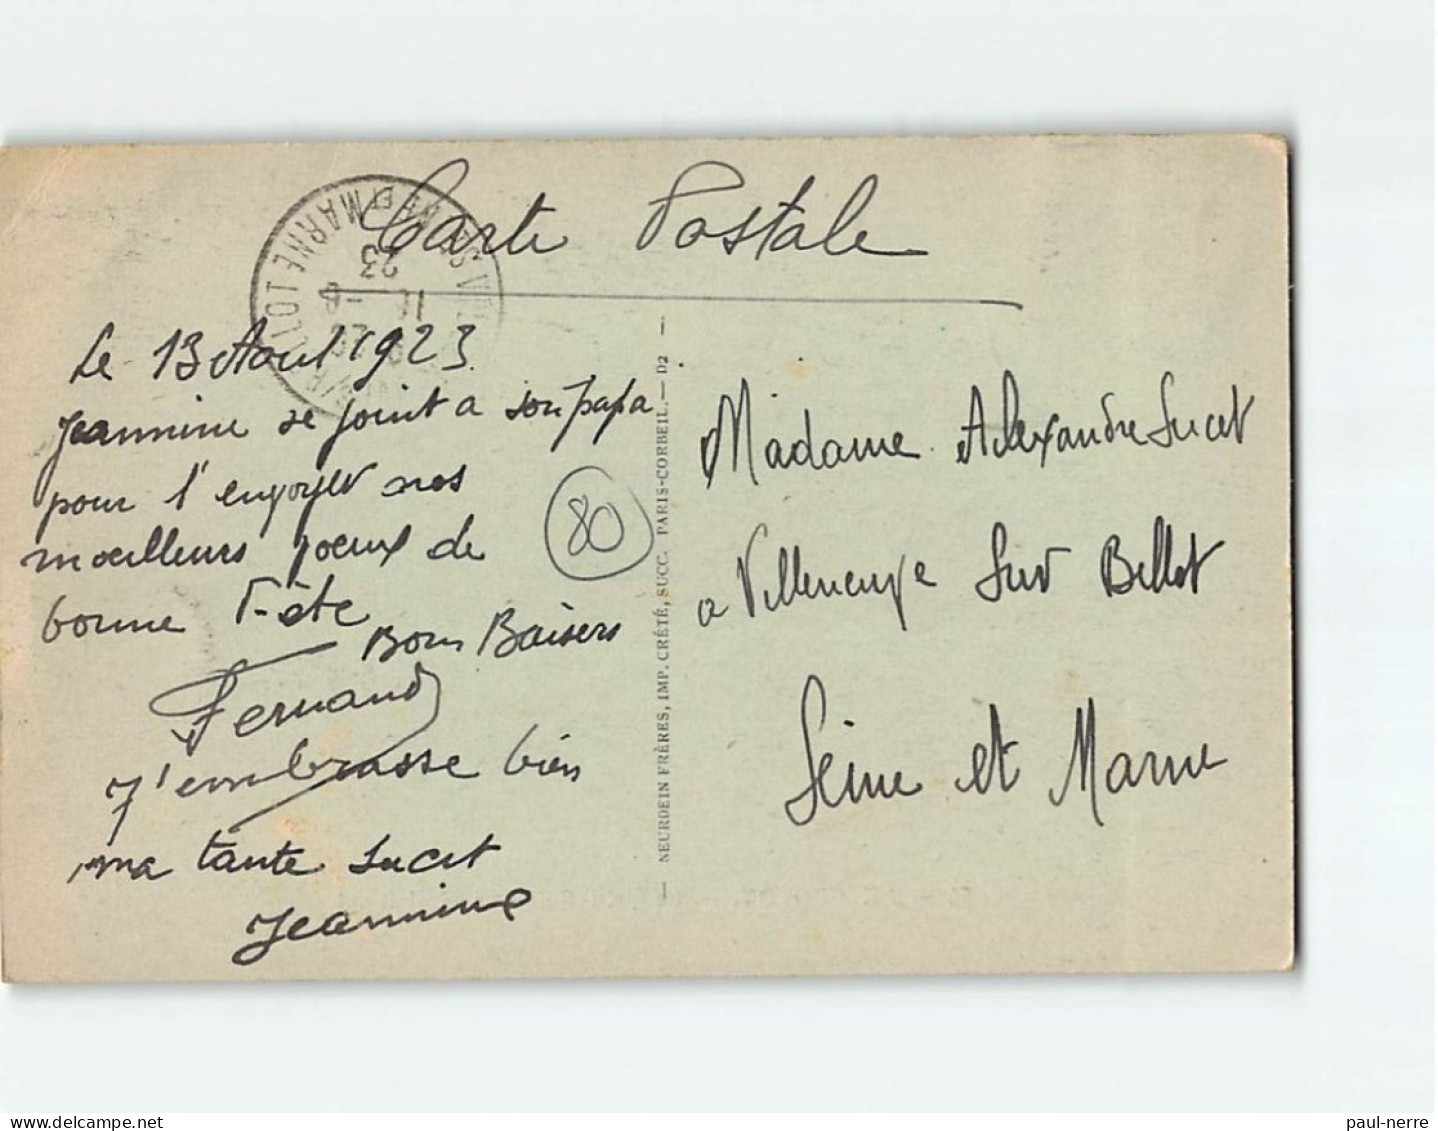 Carte Postale
Le 13 Aout 1923
Jeannine se joint a son papa
pour t'envoyer nos
meilleurs voeux de
bonne Fête
Bons Baisers
Fernand
J'embrasse bien
ma tante Sucet
Jeannine
80
NEURDEIN FRÈRES, IMP. CRÉTÉ, SUCC. PARIS-CORBEIL. — D2
Madame Alexandre Sucet
a Villeneuve Sur Bellot
Seine et Marne
23
paul-nerre